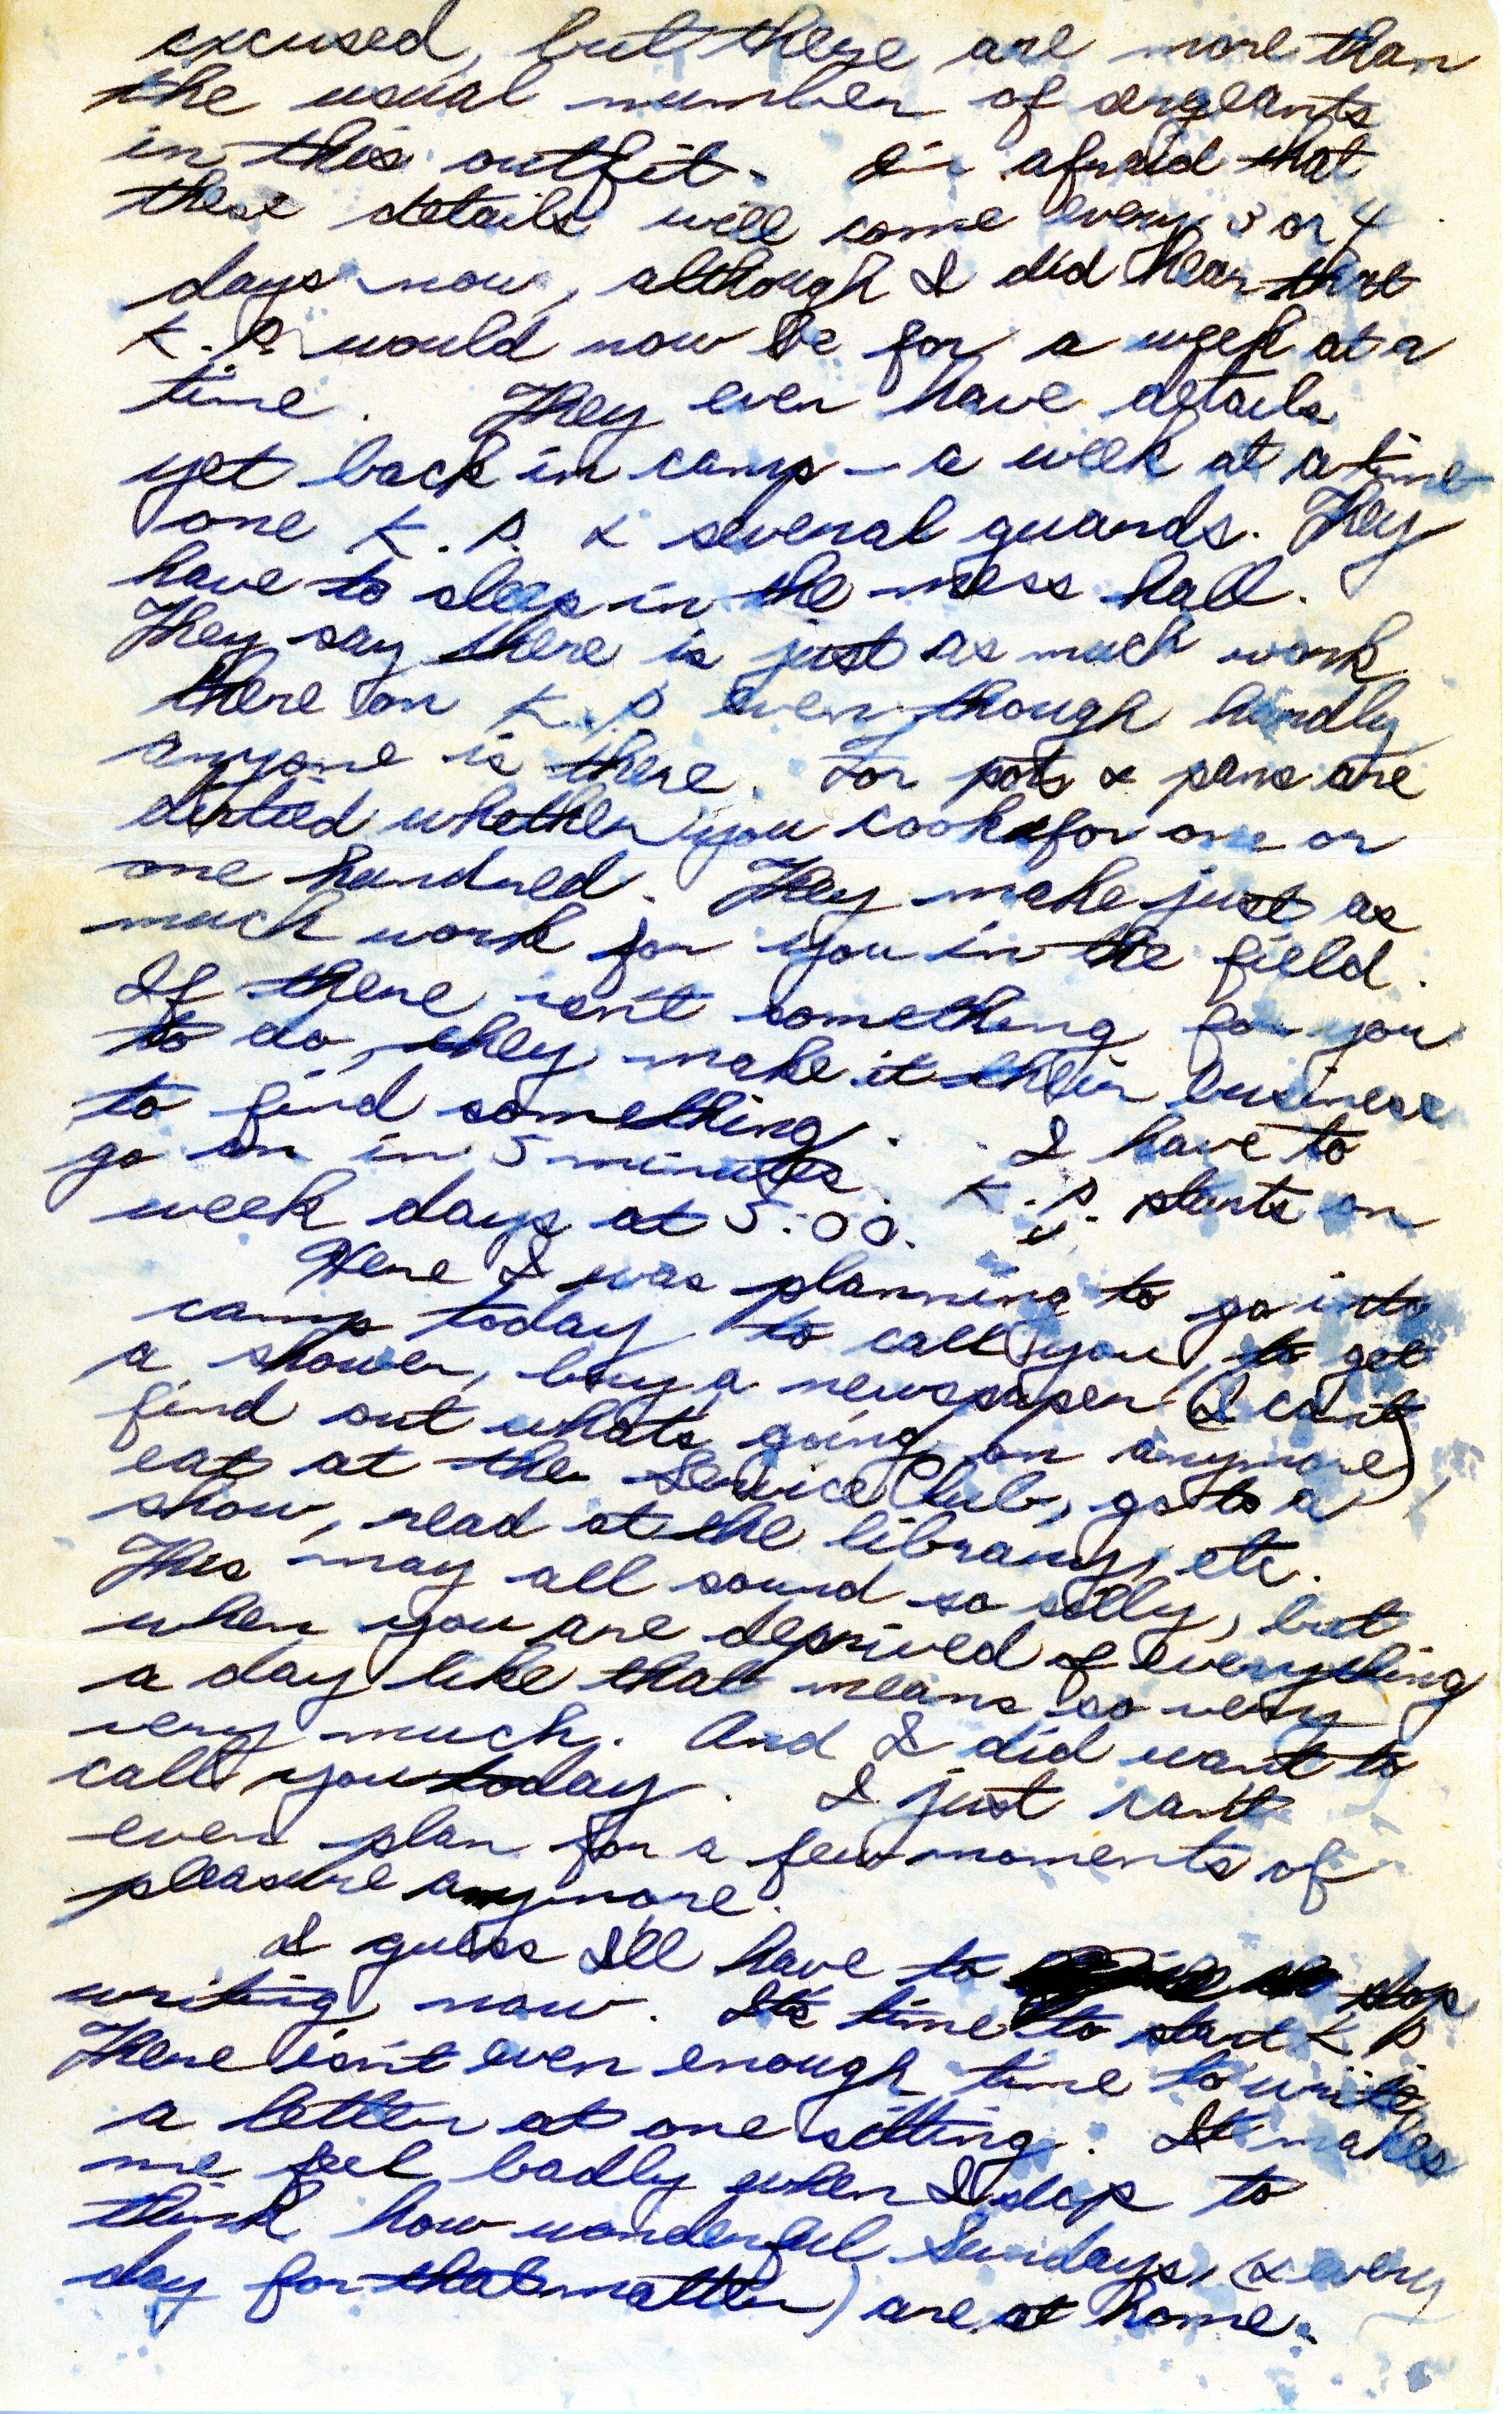 excused, but there are more than
the usual number of sergeants
in this outfit. I'm afraid that
these details will come every 3 or 4
days now, although I did hear that
K.P. would now be for a week at a
time. They even have details
yet back in camp - a week at a time
one K.P. & several guards. They
have to sleep in the mess hall.
They say there is just as much work
there on K.P. even though hardly
anyone is there. For pots & pans are
dirtied whether you cook for one or
one hundred. They make just as
much work for you in the field.
If there isn't something for you
to do, they make it their business
to find something. I have to
go on in 5 minutes. K.P. starts on
week days at 5:00.
Here I was planning to go into
camp today to call you, to get
a shower, buy a newspaper (I can't
find out whats going on anymore),
eat at the Service Club, go to a
show, read at the library, etc.
This may all sound so silly, but
when you are deprived of everything
a day like that means so very
very much. And I did want to
call you today. I just can't
even plan for a few moments of
pleasure anymore.
I guess I'll have to stop
writing now. It's time to start K P
There isn't even enough time to write
a letter at one sitting. It makes
me feel badly when I stop to
think how wonderful Sundays, (& every
day for that matter) are at home.